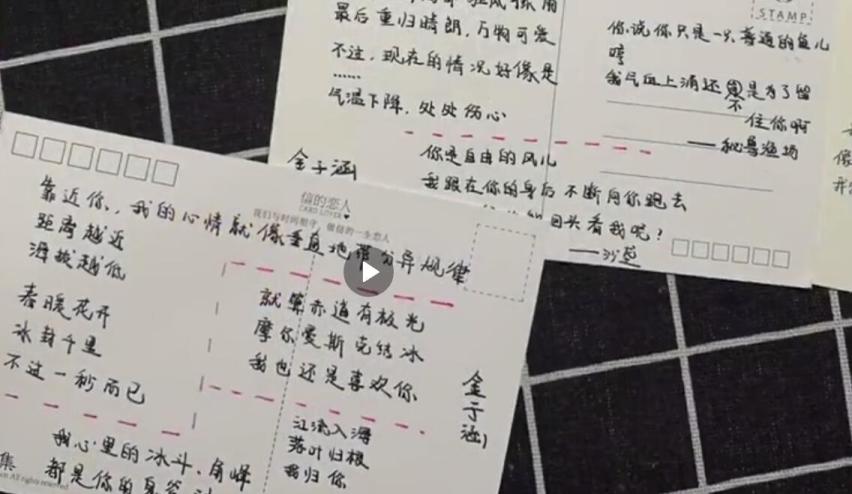 最后重归晴朗，万物可爱
不过，现在的情况好像是
……
气温下降，处处伤心
STAMP
你说你只是一只普通的鱼儿
哼
我气血上涌还不是为了留
住你啊
——秘鲁渔场
金子涵
你是自由的风儿
我跟在你的身后不断向你跑去
回头看我呢？
——沙莎
信的恋人
CARD LOVER
我们与时间相守，做信的一生恋人
靠近你，我的心情就像垂直地带分异规律
距离越近
海拔越低
春暖花开
冰封千里
不过一秒而已
就算赤道有极光
摩尔曼斯克结冰
我也还是喜欢你
金子涵
江流入海
落叶归根
我归你
我心里的冰斗、角峰
都是你的
集
All rights reserved